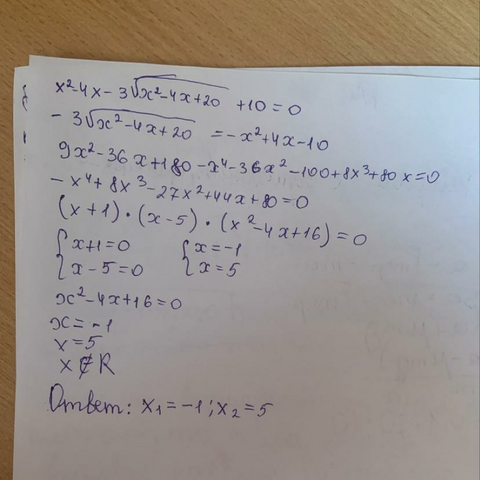 x²-4x-3√x²-4x+20 +10=0
-3√x²-4x+20 =-x²+4x-10
9x²-36x+180-x⁴-36x²-100+8x³+80x=0
-x⁴+8x³-27x²+44x+80=0
(x+1)·(x-5)·(x²-4x+16)=0
{x+1=0 {x=-1
x-5=0 x=5
x²-4x+16=0
x=-1
x=5
x∉R
Ответ: x₁=-1; x₂=5